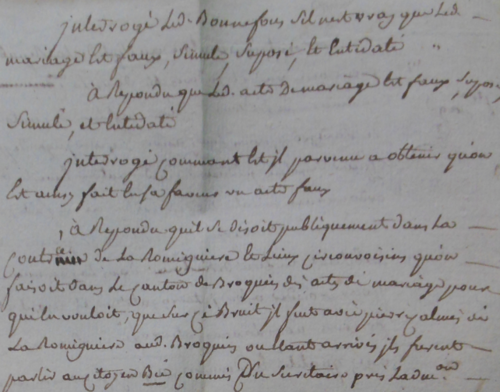 jnterrogé Led. Bonnefous sil nest vray que Led.
mariage Est faux, simulé, suposé, Et Entidaté
à Repondu que Led. acte de mariage Est faux, supos
simulé, et Entidaté
jnterrogé comment Est jl parvenu a obtenir quon
Est ainsy fait En sa faveur un acte faux
, à Repondu quil se disoit publiquement dans La
de La Romiguiere Et Lieux circonvoisins quon
faisoit dans Le canton de Broquiés des actes de mariage pour
qui En vouloit, que sur ce Bruit jl fut avec pierre calmés de
La Romiguiere aud. Broquiés ou Etant arrivés jls furent
parler au citoyen commis Du Secretaire prés Ladmon